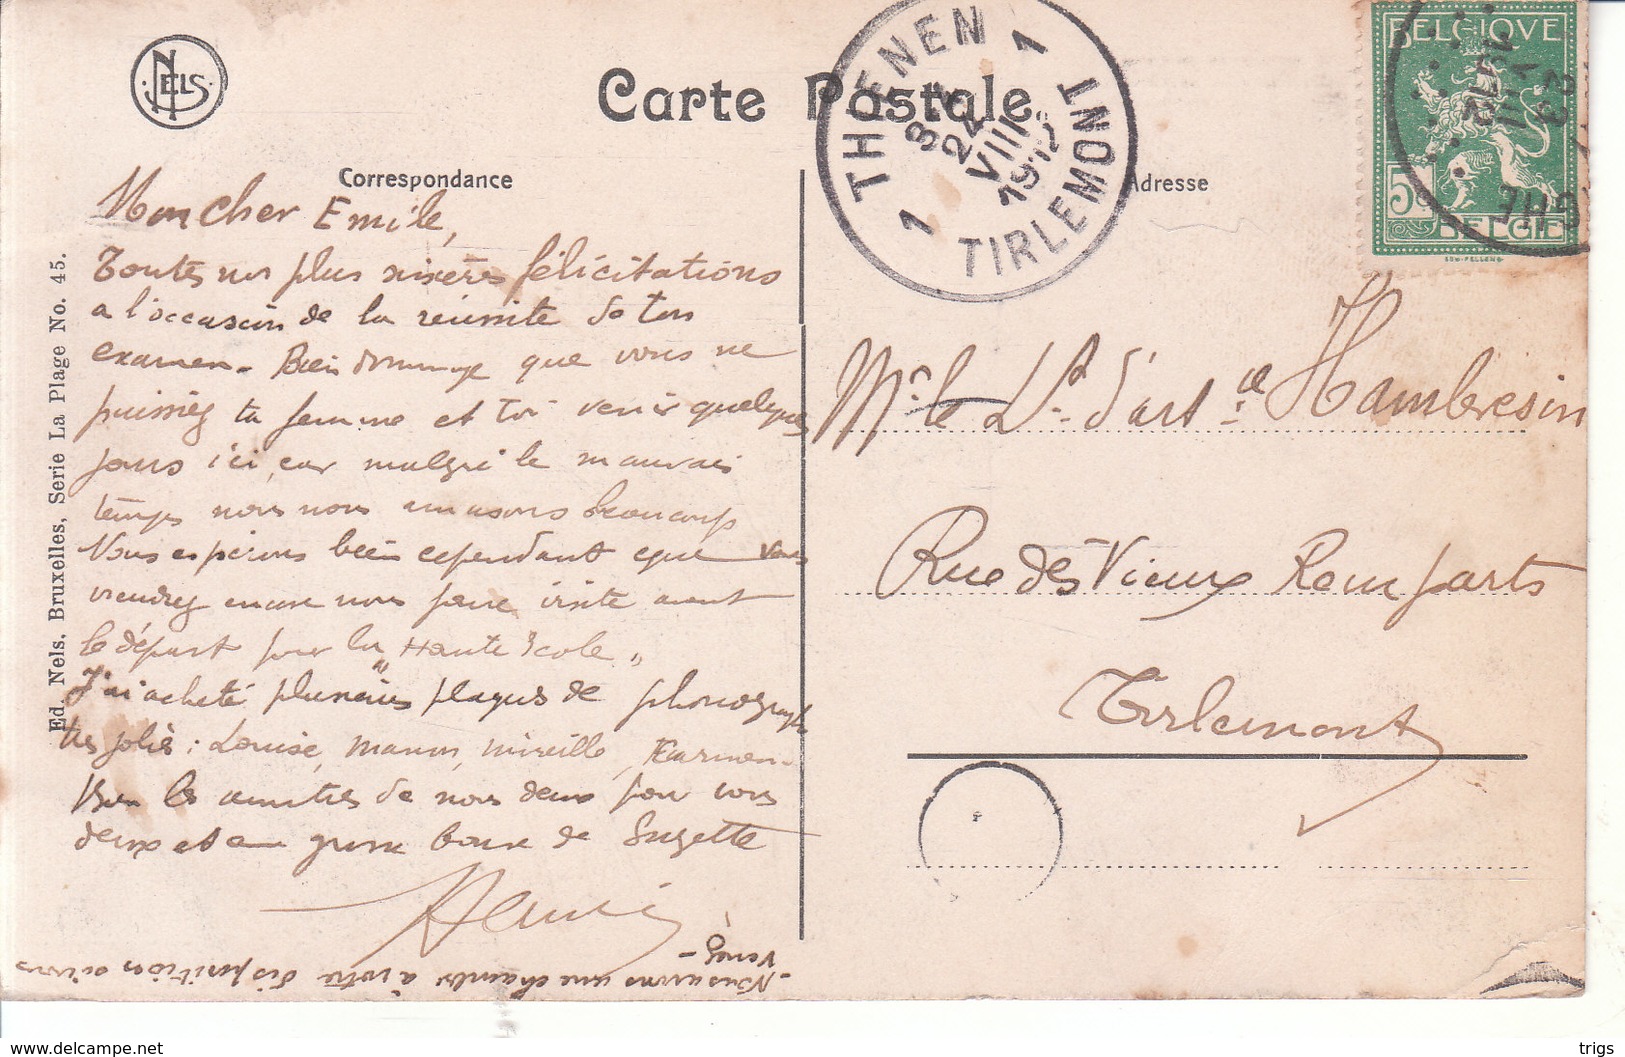 NELS
Carte Postale
Correspondance
Adresse
THIENEN 1
24
VIII
1912
1 TIRLEMONT
BELGIQUE
5c
BELGIË
GHE
Mon cher Emile,
Toutes nos plus sincères félicitations
a l'occasion de la réussite de ton
examen. Bien dommage que vous ne
puissiez ta femme et toi venir quelques
jours ici, car malgré le mauvais
temps nous nous amusons beaucoup
Nous espérons bien cependant que vous
viendrez encore nous faire visite avant
le départ pour la "Haute Ecole"
J'ai acheté plusieurs plaques de phonographe
très jolies : Louise, Manon, Mireille, Carmen.
Bien les amitiés de nous deux pour vous
deux et un gros baiser de Suzette
Henri
- Nous avons une chambre à votre disposition
Venez -
Mr. le Lt. d'art.ie Hambresin
Rue des Vieux Remparts
Tirlemont
Ed. Nels, Bruxelles, Serie La Plage No. 45.
www.delcampe.net
trigs